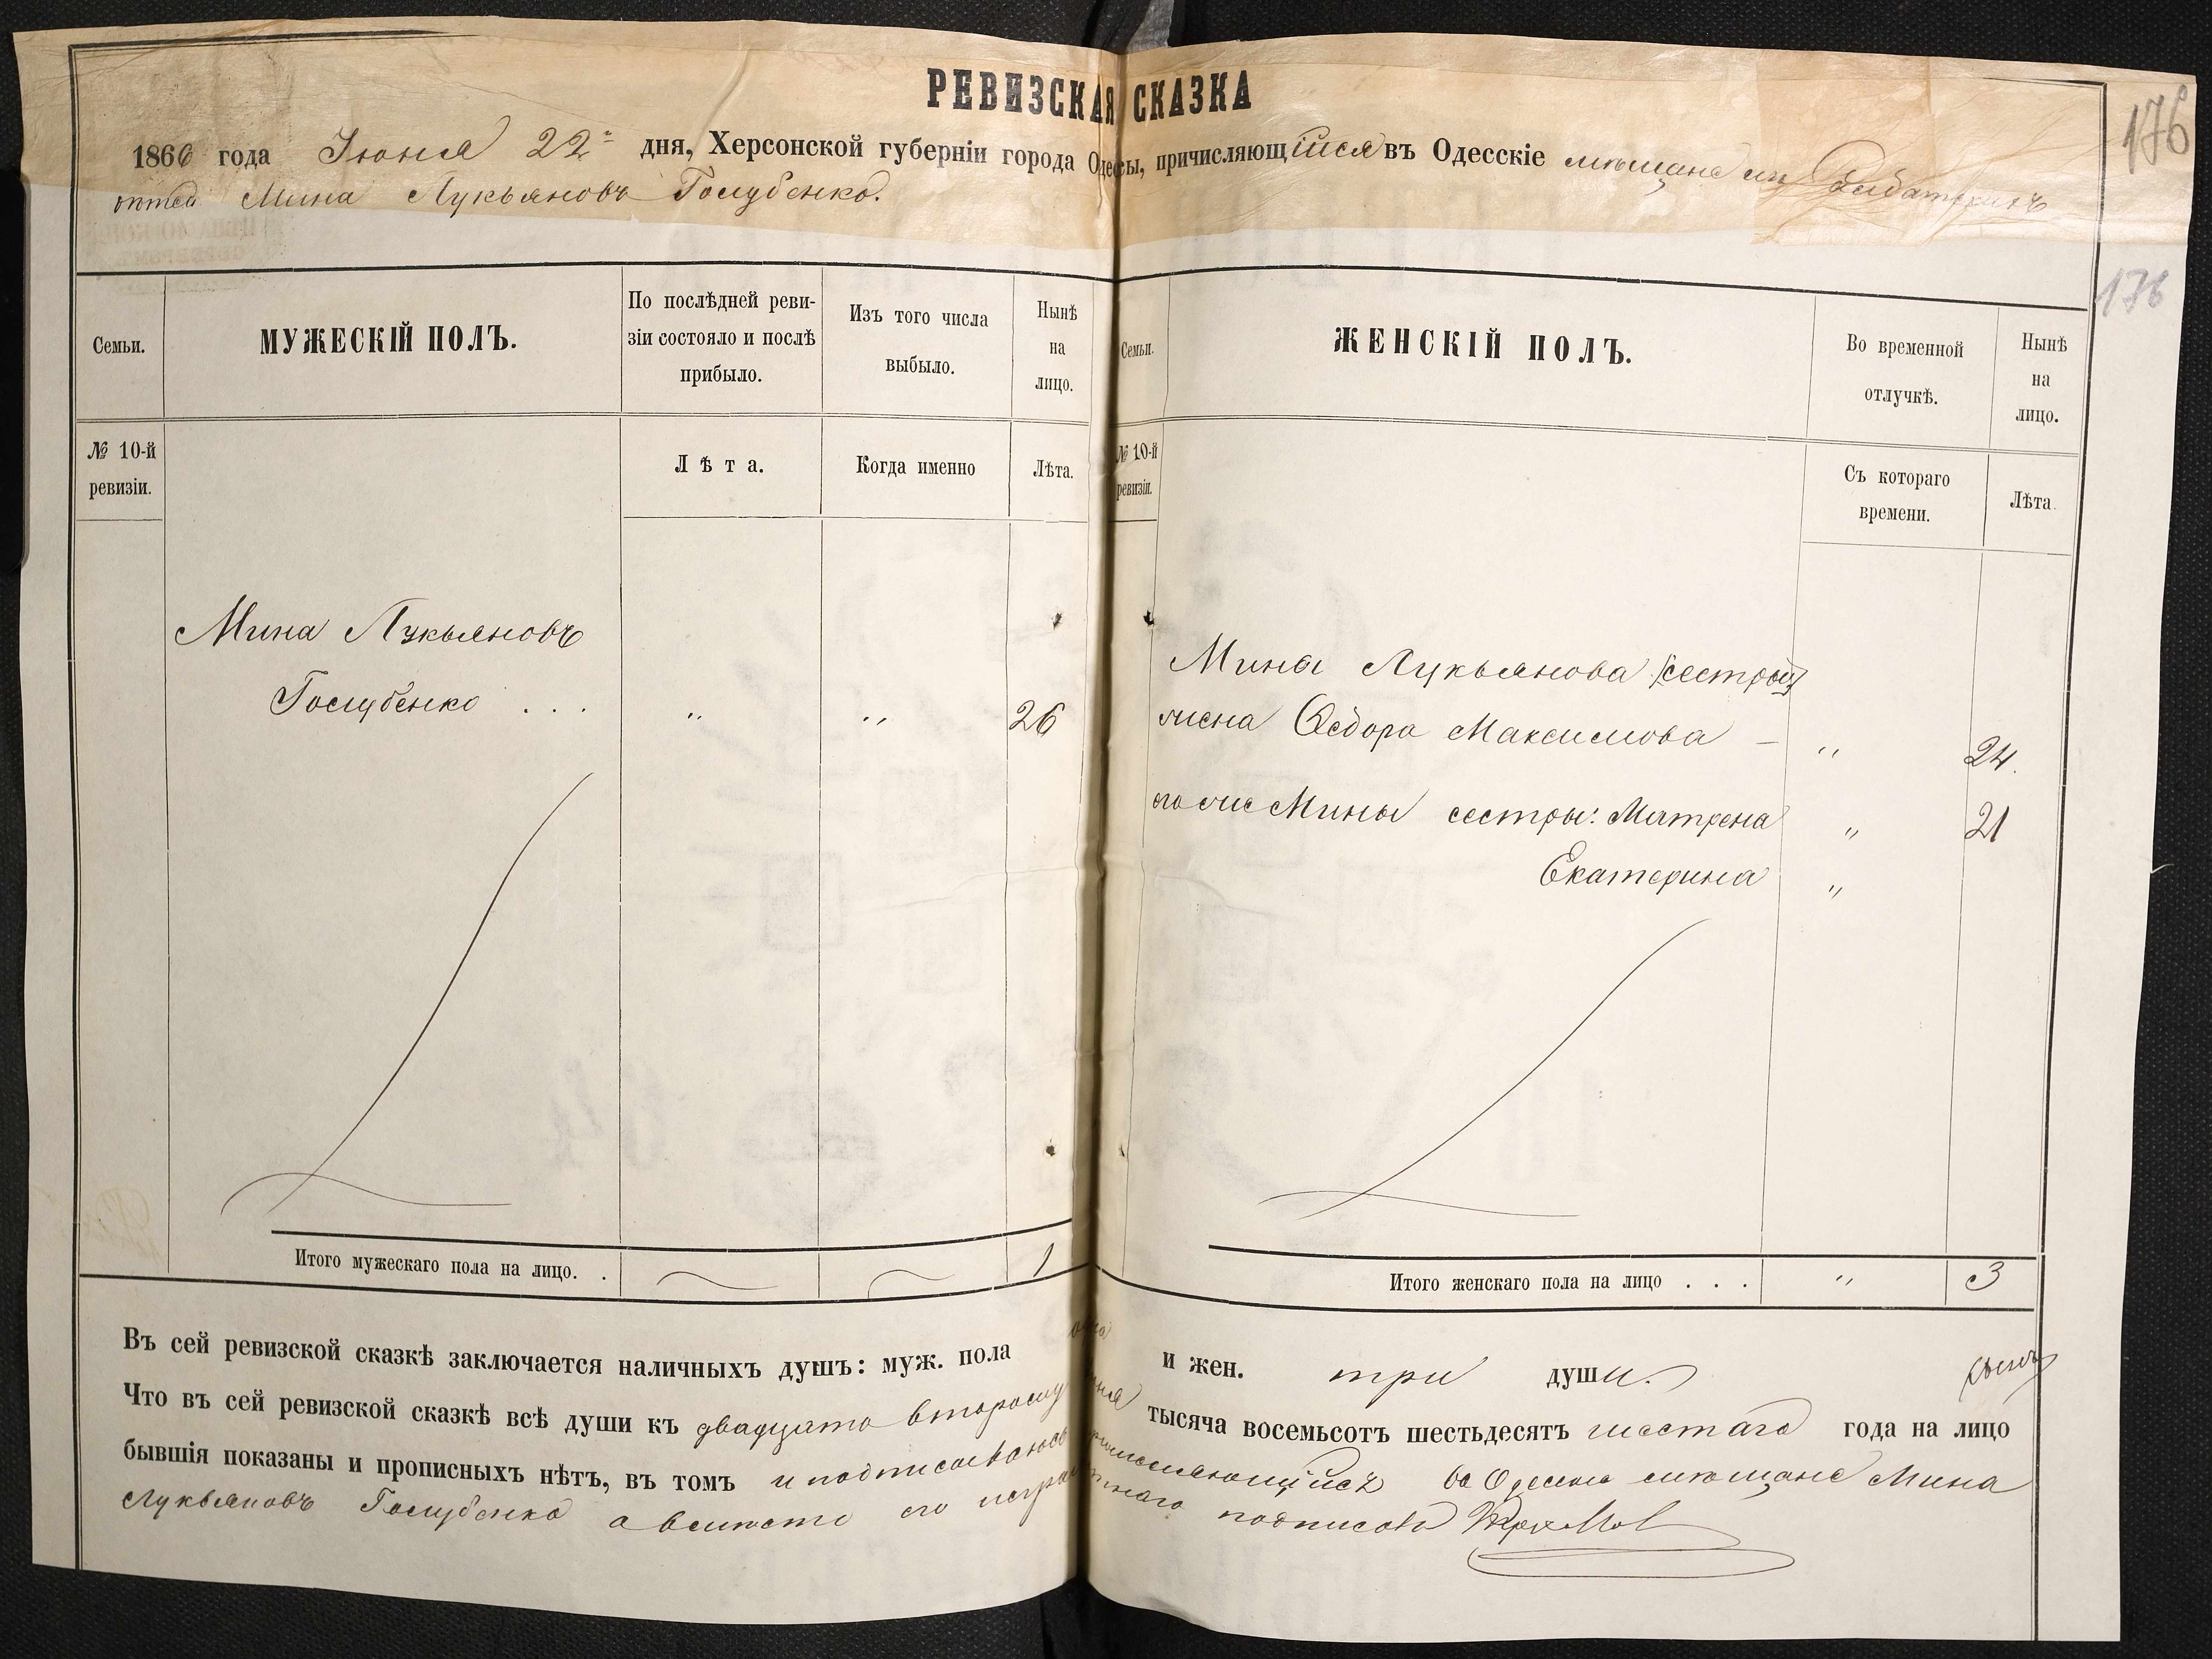 РЕВИЗСКАЯ СКАЗКА
1866 года Іюня 22 дня, Херсонской губерніи города Одессы, причисляющійся въ Одесскіе мѣщане изъ
Мина Лукьяновъ Голубенко.
176
176
Семьи.
МУЖЕСКІЙ ПОЛЪ.
По послѣдней реви-
зіи состояло и послѣ
прибыло.
Изъ того числа
выбыло.
Нынѣ
на
лицо.
№ 10-й
ревизіи.
Лѣта.
Когда именно
Лѣта.
Мина Лукьяновъ
Голубенко . . . " " 26
Итого мужескаго пола на лицо. . 1
Семьи.
ЖЕНСКІЙ ПОЛЪ.
Во временной
отлучкѣ.
Нынѣ
на
лицо.
№ 10-й
ревизіи.
Съ котораго
времени.
Лѣта.
Мины Лукьянова
жена Ѳедора Максимова — " 24.
его же Мины сестры: Матрена " 21
Екатерина "
Итого женскаго пола на лицо . . . " 3
Въ сей ревизской сказкѣ заключается наличныхъ душъ: муж. пола одна и жен. три души.
Что въ сей ревизской сказкѣ всѣ души къ двадцать второму іюня тысяча восемьсотъ шестьдесятъ шестаго года на лицо
бывшія показаны и прописныхъ нѣтъ, въ томъ и подписываюсь причисляющійся въ Одесскіе мѣщане Мина
Лукьяновъ Голубенко а вмѣсто его неграмотнаго подписалъ